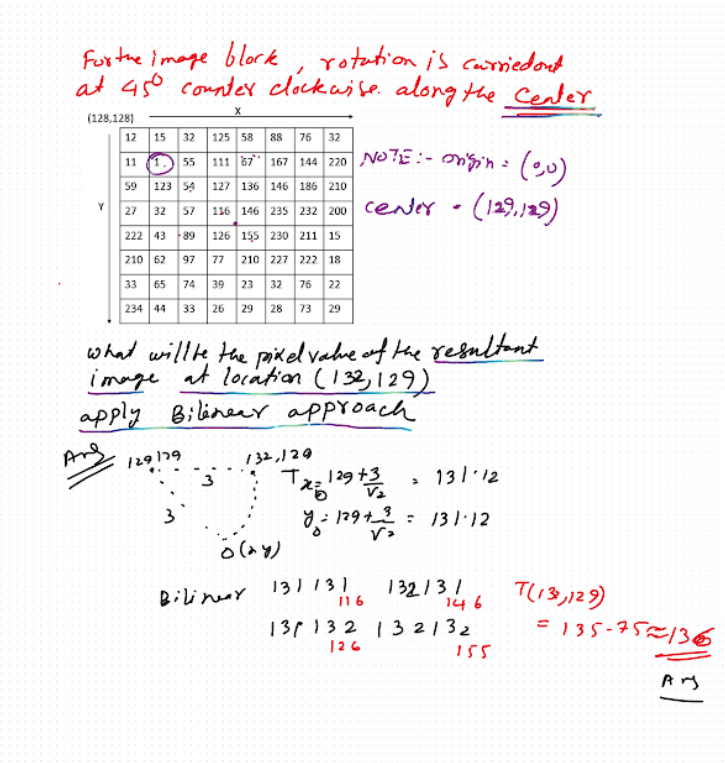 For the image block, rotation is carriedout
at 45° counter clockwise along the center
(128,128)
X
12 15 32 125 58 88 76 32
11 1. 55 111 67 167 144 220
NOTE:- origin = (0,0)
59 123 54 127 136 146 186 210
Y
27 32 57 116 146 235 232 200
center = (129,129)
222 43 89 126 155 230 211 15
210 62 97 77 210 227 222 18
33 65 74 39 23 32 76 22
234 44 33 26 29 28 73 29
what will be the pixel value of the resultant
image at location (132,129)
apply Bilinear approach
Ans
129 129 132,129
3
Tx0 = 129+3/√2 = 131.12
3
y0 = 129+3/√2 = 131.12
O(x y)
Bilinear 131 131 132 131 T(132,129)
116 146
131 132 132 132 = 135-75≈136
126 155
Ans